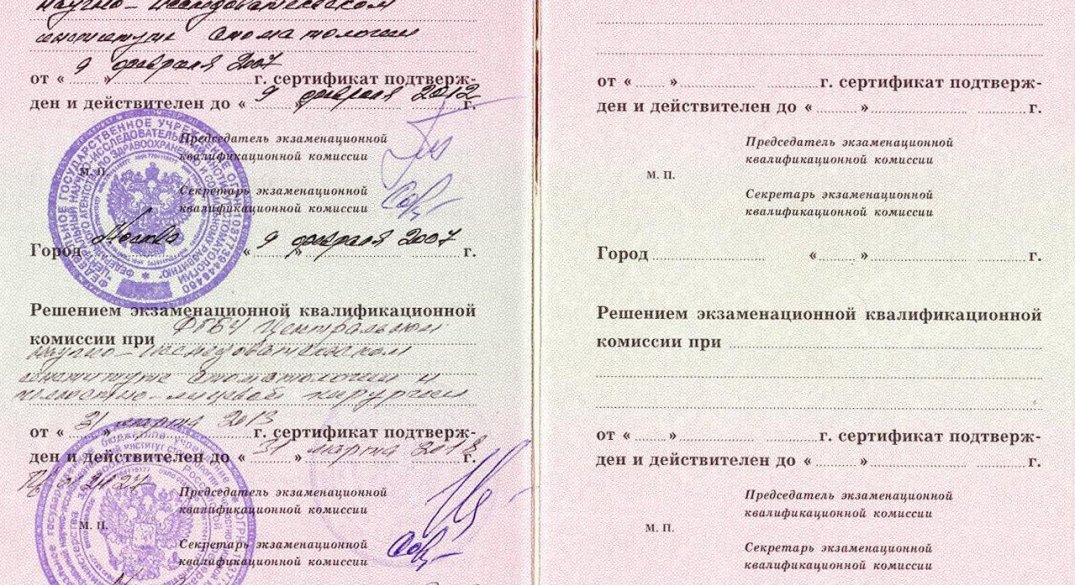 научно-исследовательском
институте стоматологии
от « 9 » февраля 2007 г. сертификат подтверж-
ден и действителен до « 9 » февраля 2012 г.
Председатель экзаменационной
квалификационной комиссии
М. П.
Секретарь экзаменационной
квалификационной комиссии
Город Москва « 9 » февраля 2007 г.
Решением экзаменационной квалификационной
комиссии при ФГБУ Центральном
научно-исследовательском
институте стоматологии и
челюстно-лицевой хирургии
от « 31 » марта 2013 г. сертификат подтверж-
ден и действителен до « 31 » марта 2018 г.
Председатель экзаменационной
квалификационной комиссии
М. П.
Секретарь экзаменационной
квалификационной комиссии
от « » г. сертификат подтверж-
ден и действителен до « » г.
Председатель экзаменационной
квалификационной комиссии
М. П.
Секретарь экзаменационной
квалификационной комиссии
Город « » г.
Решением экзаменационной квалификационной
комиссии при
от « » г. сертификат подтверж-
ден и действителен до « » г.
Председатель экзаменационной
квалификационной комиссии
М. П.
Секретарь экзаменационной
квалификационной комиссии